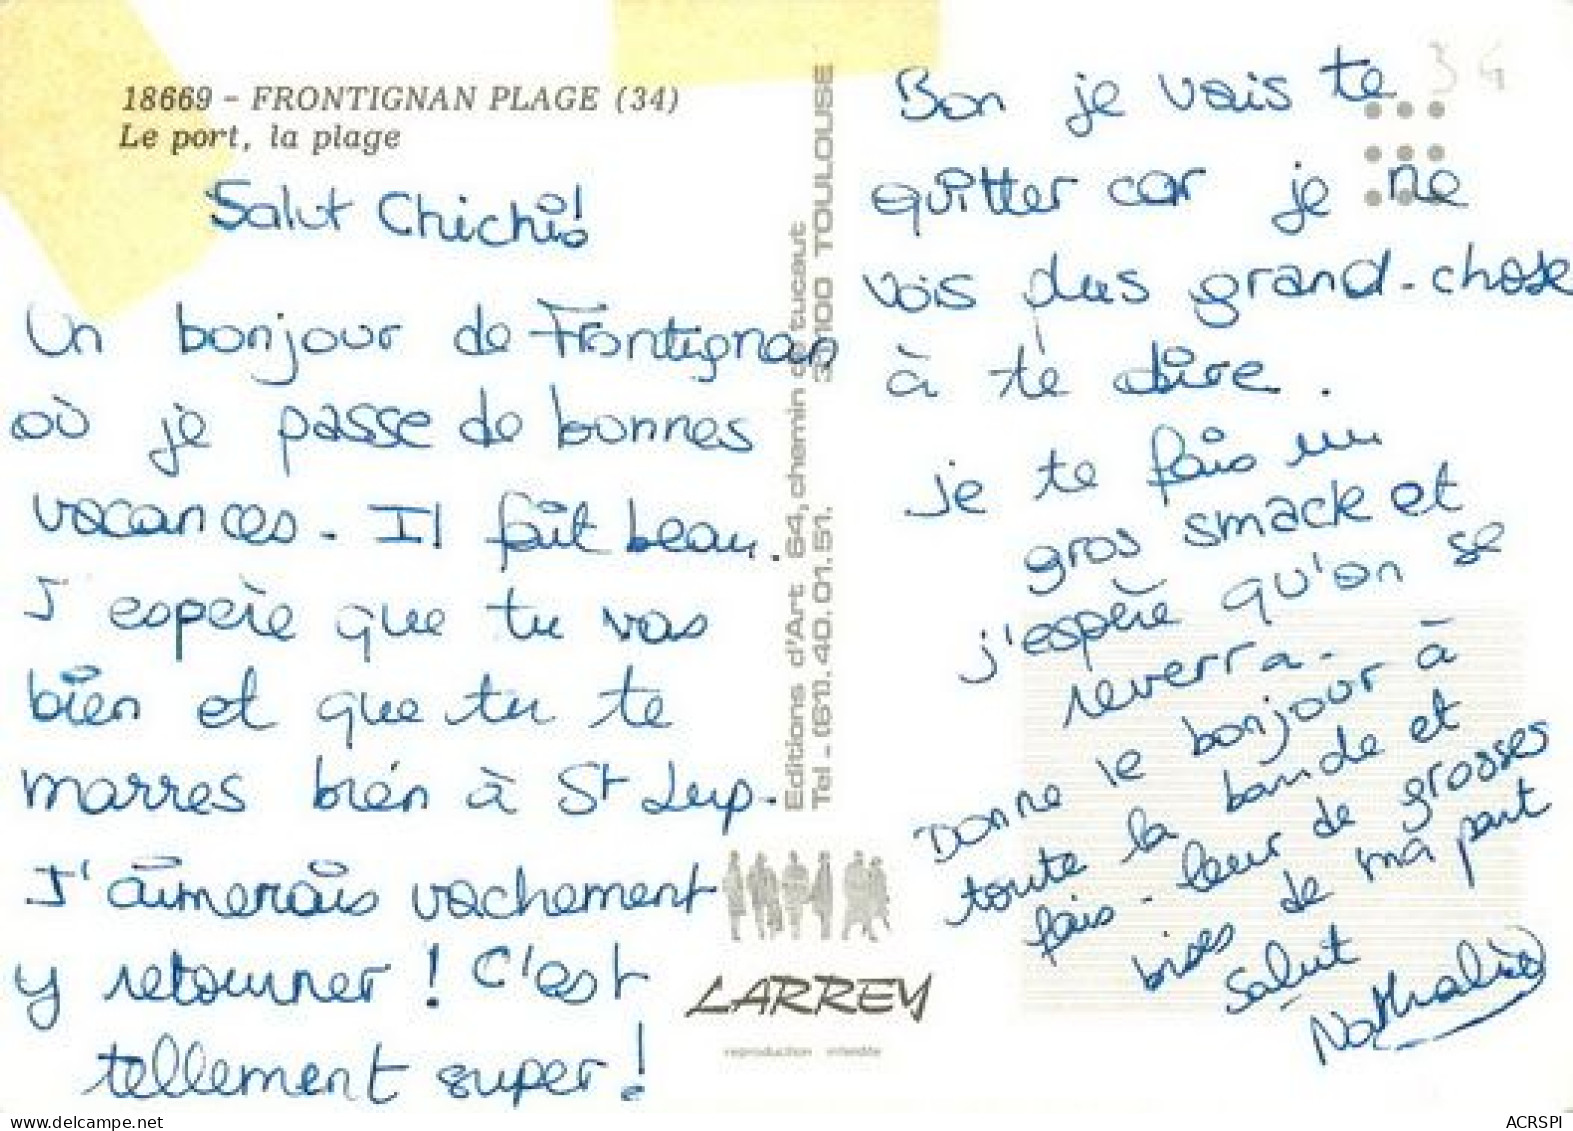 18669 - FRONTIGNAN PLAGE (34)
Le port, la plage
Salut Chichi!
Un bonjour de Frontignan
où je passe de bonnes
vacances. Il fait beau.
J'espère que tu vas
bien et que tu te
marres bien à St Lup.
J'aimerais vachement
y retourner ! C'est
tellement super !
Editions d'Art 64, chemin de tucaut
Tel - (61). 40.01.51. 31100 TOULOUSE
LARREY
reproduction interdite
34
Bon je vais te
quitter car je ne
vois plus grand-chose
à te dire.
je te fais un
gros smack et
j'espère qu'on se
reverra.
Donne le bonjour à
toute la bande et
fais-leur de grosses
bises de ma part
Salut
Nathalie
www.delcampe.net
ACRSPI